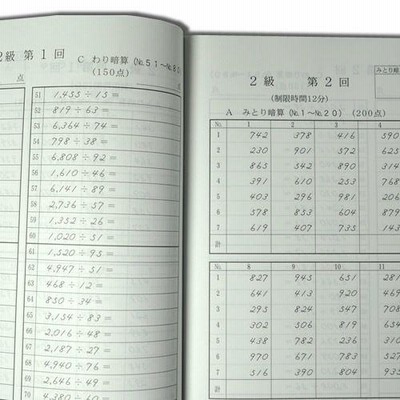 2級 第1回
C わり暗算 (№51~№80)
(150点)
点
51 1,455÷15=
52 819÷63=
53 6,364÷74=
54 798÷38=
55 6,808÷92=
56 1,610÷46=
57 6,141÷89=
58 2,736÷57=
59 1,352÷26=
60 1,020÷51=
61 1,520÷95=
62 4,947÷51=
63 468÷12=
64 850÷34=
65 3,154÷83=
66 2,016÷48=
67 2,187÷27=
68 4,940÷76=
69 2,646÷49=
70 4,380÷60=
みとり暗
2級 第2回
(制限時間12分)
A みとり暗算 (№1~№20) (200点)
№ 1 2 3 4
1 742 378 416 590
2 230 901 572 625
3 865 542 890 314
4 391 610 253 768
5 403 296 981 206
6 578 853 604 879
7 619 407 735 143
計
№ 8 9 10 11
1 827 945 651 281
2 641 413 920 469
3 295 824 547 708
4 302 506 819 654
5 438 782 236 310
6 970 671 783 527
7 516 390 804 935